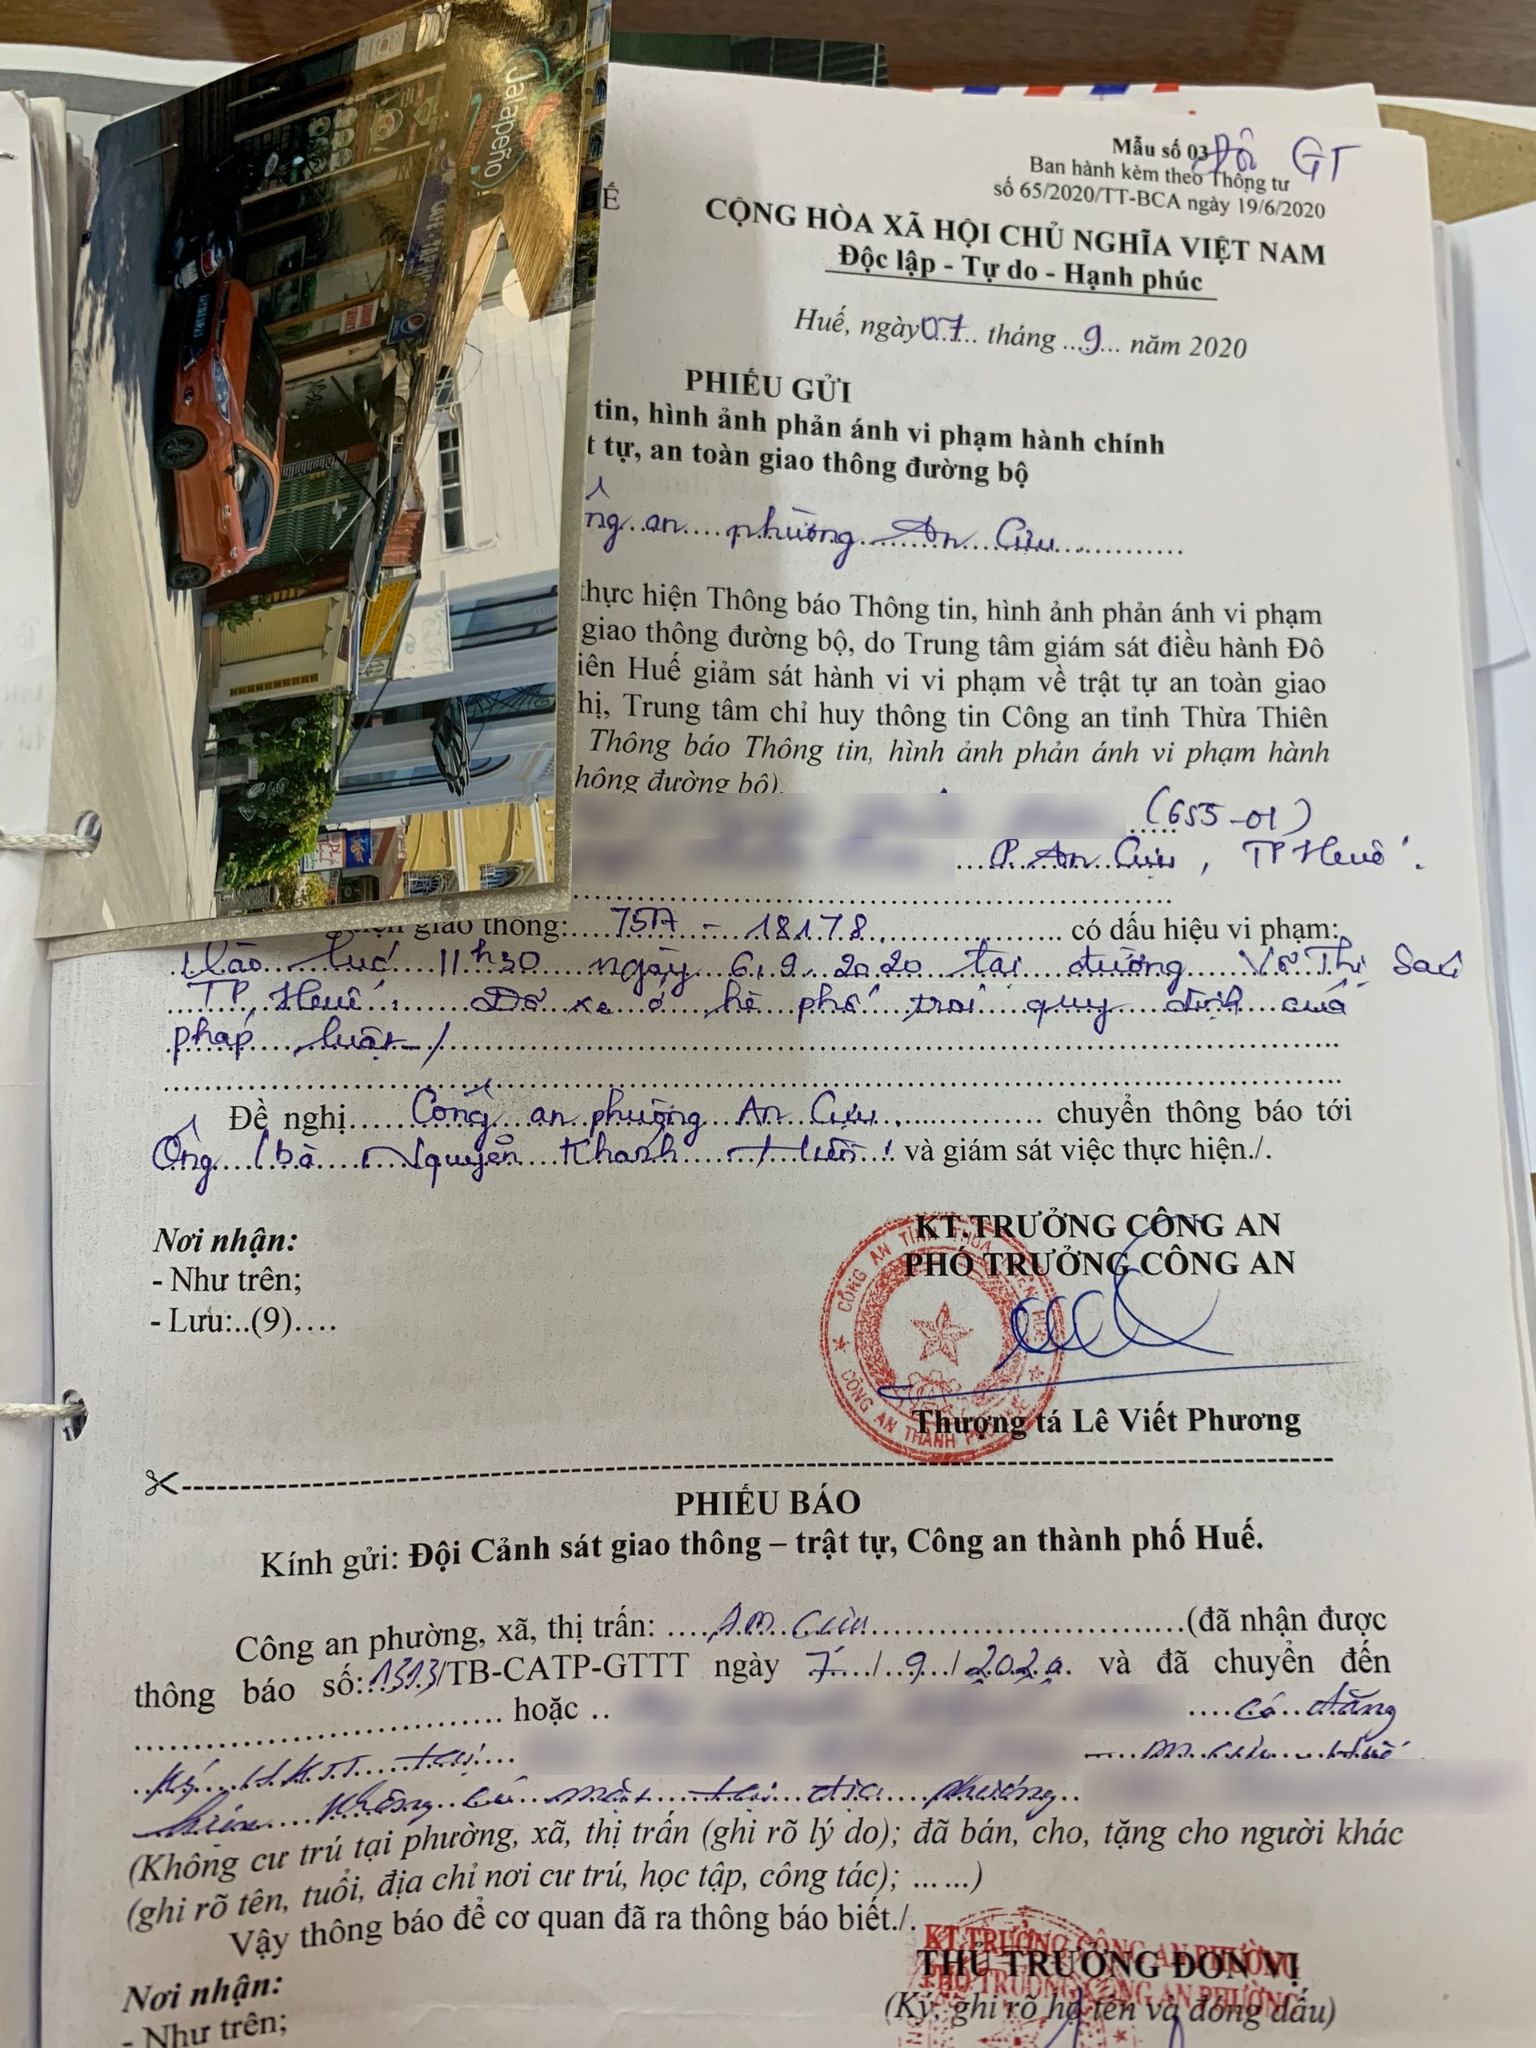 Jalapeño
Mẫu số 03 Đội GT
Ban hành kèm theo Thông tư
số 65/2020/TT-BCA ngày 19/6/2020
Ế
CỘNG HÒA XÃ HỘI CHỦ NGHĨA VIỆT NAM
Độc lập - Tự do - Hạnh phúc
Huế, ngày 07 tháng 9 năm 2020
PHIẾU GỬI
tin, hình ảnh phản ánh vi phạm hành chính
t tự, an toàn giao thông đường bộ
ng an phường An Cựu
thực hiện Thông báo Thông tin, hình ảnh phản ánh vi phạm
giao thông đường bộ, do Trung tâm giám sát điều hành Đô
iên Huế giảm sát hành vi vi phạm về trật tự an toàn giao
hị, Trung tâm chỉ huy thông tin Công an tỉnh Thừa Thiên
Thông báo Thông tin, hình ảnh phản ánh vi phạm hành
hông đường bộ).
(655-01)
P. An Cựu, TP Huế.
giao thông: 75A - 181.78 có dấu hiệu vi phạm:
Vào lúc 11h30 ngày 6.9.2020 tại đường Võ Thị Sáu
TP, Huế: Đỗ xe ở hè phố trái quy định của
pháp luật./
Đề nghị Công an phường An Cựu chuyển thông báo tới
Ông (bà Nguyễn Khánh và giám sát việc thực hiện./.
Nơi nhận:
- Như trên;
- Lưu:..(9)....
KT.TRƯỞNG CÔNG AN
PHÓ TRƯỞNG CÔNG AN
CÔNG AN TỈNH THỪA THIÊN HUẾ
CÔNG AN THÀNH PHỐ HUẾ
Thượng tá Lê Viết Phương
PHIẾU BÁO
Kính gửi: Đội Cảnh sát giao thông – trật tự, Công an thành phố Huế.
Công an phường, xã, thị trấn: An Cựu (đã nhận được
thông báo số: 1313/TB-CATP-GTTT ngày 7/9/2020 và đã chuyển đến
hoặc có đăng
ký HKTT tại An Cựu Huế
hiện không có mặt tại địa phương
(Không cư trú tại phường, xã, thị trấn (ghi rõ lý do); đã bán, cho, tặng cho người khác
(ghi rõ tên, tuổi, địa chỉ nơi cư trú, học tập, công tác); ... ...)
Vậy thông báo để cơ quan đã ra thông báo biết./.
KT.TRƯỞNG CÔNG AN PHƯỜNG
THỦ TRƯỞNG ĐƠN VỊ
PHÓ TRƯỞNG CÔNG AN PHƯỜNG
(Ký, ghi rõ họ tên và đóng dấu)
Nơi nhận:
- Như trên;